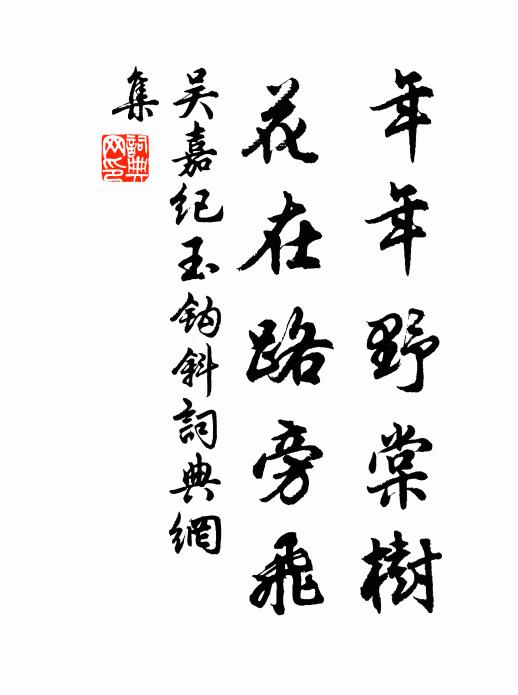 年年野棠樹
花在路旁飛
吴嘉纪玉鈎斜詞典網
集
詞典
网印